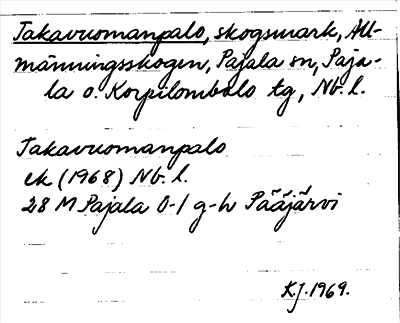 Takavuomanpalo, skogsmark, All-
männingsskogen, Pajala sn, Paja-
la o. Korpilombolo tg, Nb. l.
Takavuomanpalo
ek (1968) Nb. l.
28 M Pajala 0-1 g-h Pääjärvi
KJ. 1969.